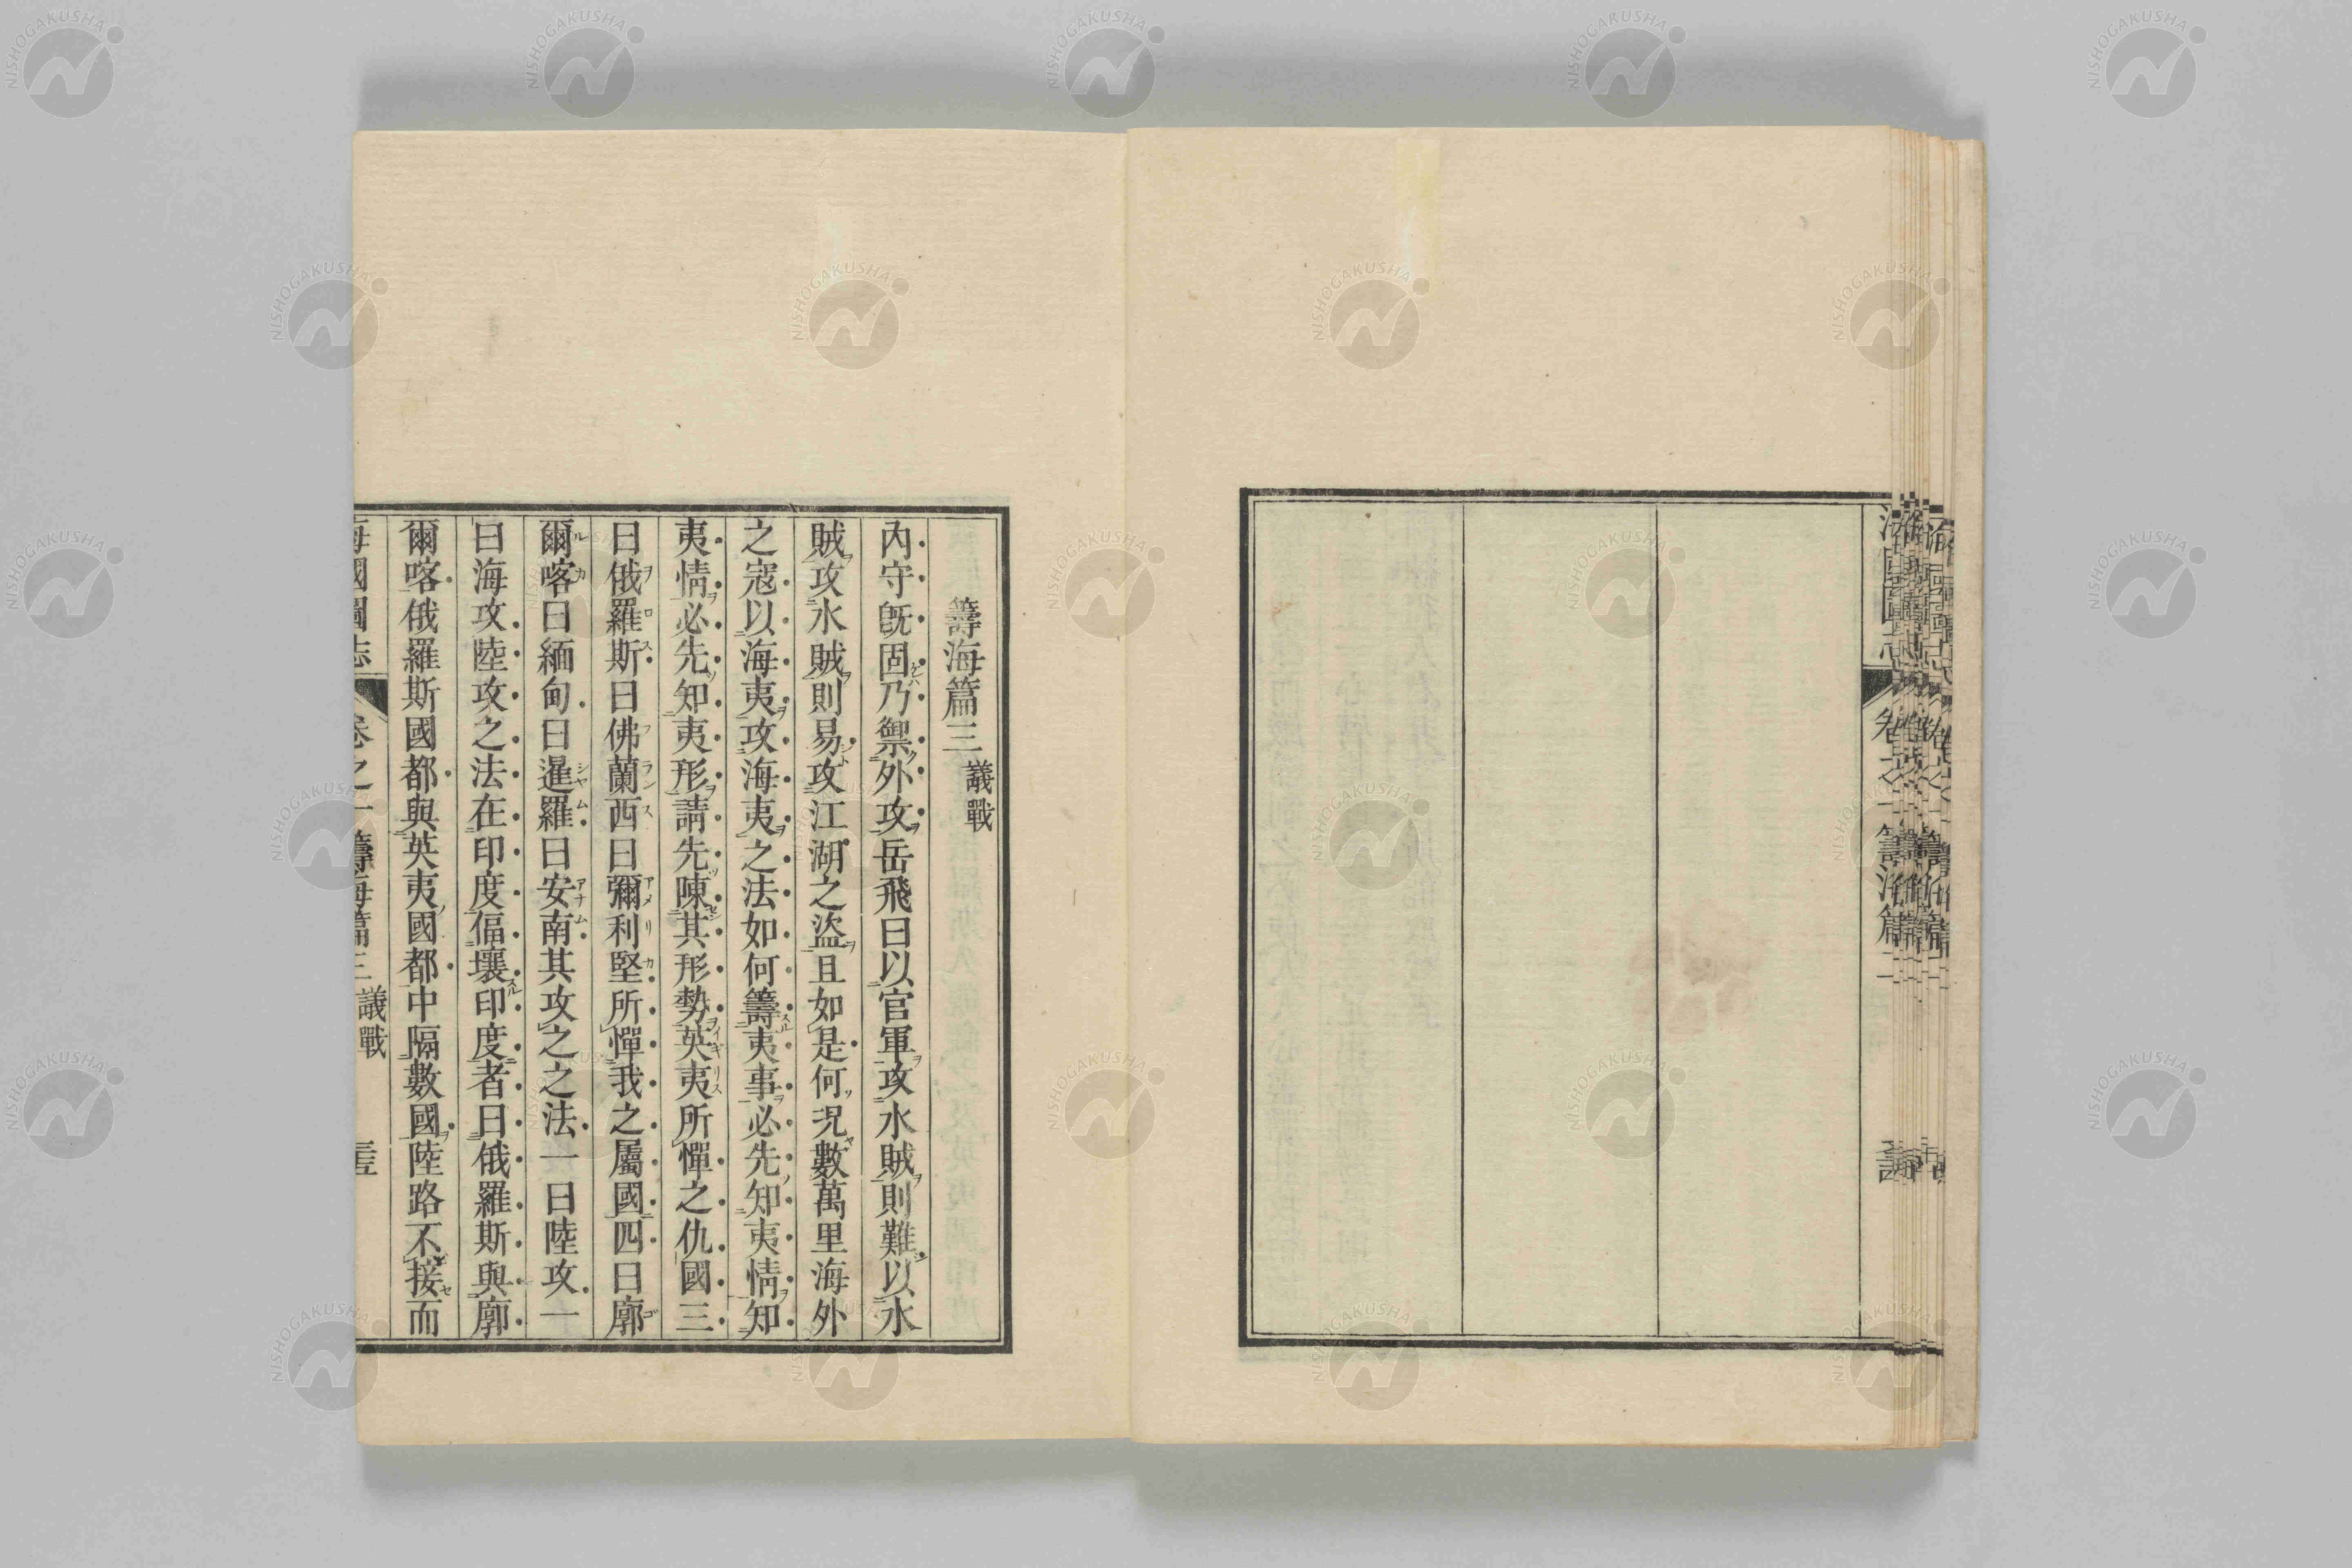 籌海篇三 議戰
內守既固乃禦外攻岳飛曰以官軍攻水賊則難以水
賊攻水賊則易攻江湖之盜且如是何況數萬里海外
之寇以海夷攻海夷之法如何籌夷事必先知夷情知
夷情必先知夷形請先陳其形勢英夷所憚之仇國三
曰俄羅斯曰佛蘭西曰彌利堅所憚我之屬國四曰廓
爾喀曰緬甸曰暹羅曰安南其攻之之法一曰陸攻一
曰海攻陸攻之法在印度偪壤印度者曰俄羅斯與廓
爾喀俄羅斯國都與英夷國都中隔數國陸路不接而
海國圖志 卷之一 籌海篇三 議戰
NISHOGAKUSHA